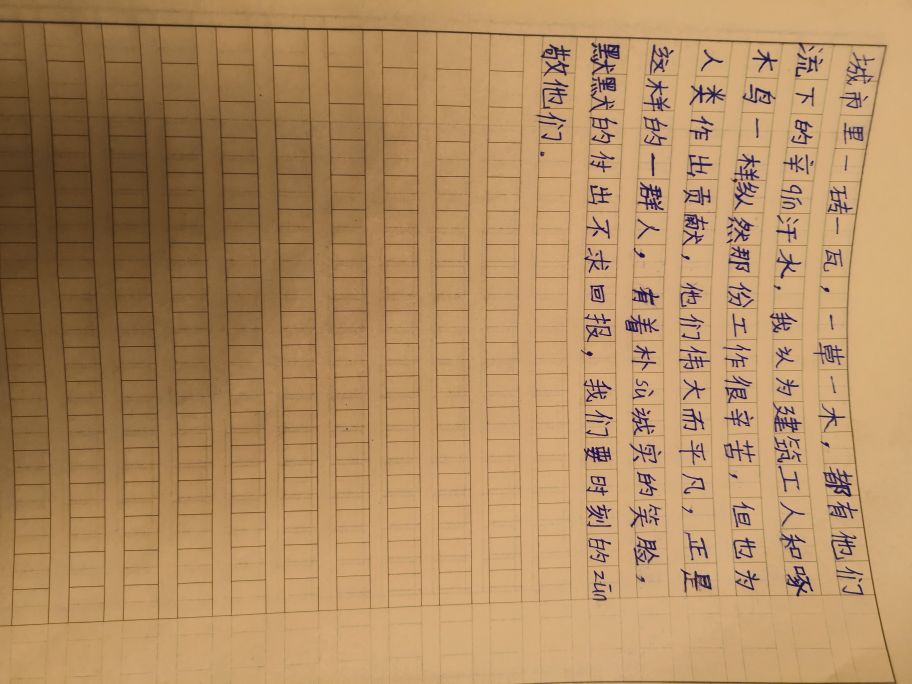 城市里一砖一瓦，一草一木，都有他们
流下的辛qín汗水，我认为建筑工人和啄
木鸟一样，纵然那份工作很辛苦，但也为
人类作出贡献，他们伟大而平凡，正是
这样的一群人，有着朴sù诚实的笑脸，
默默的付出不求回报，我们要时刻的zūn
敬他们．